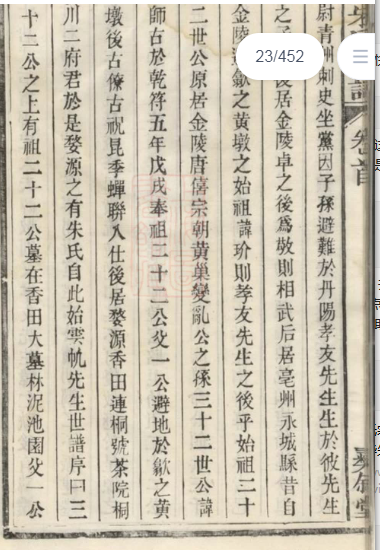 卷首
尉青州刺史坐黨因子孫避難於丹陽孝友先生生於彼先生
之子 後居金陵卓之後為敬則相武后居亳州永城縣昔自
金陵 歙之黃墩之始祖諱玠則孝友先生之後乎始祖二十
二世公原居金陵唐僖宗朝黃巢變亂公之孫三十二世公諱
師古於乾符五年戊戌奉祖二十二公父一公避地於歙之黃
壞後古僚古祝昆季蟬聯入仕後居婺源香田連桐號茶院桐
川二府君於是婺源之有朱氏自此始雲帆先生世譜序曰三
十二公之上有祖二十二公墓在香田大墓林泥池園父一公
23/452